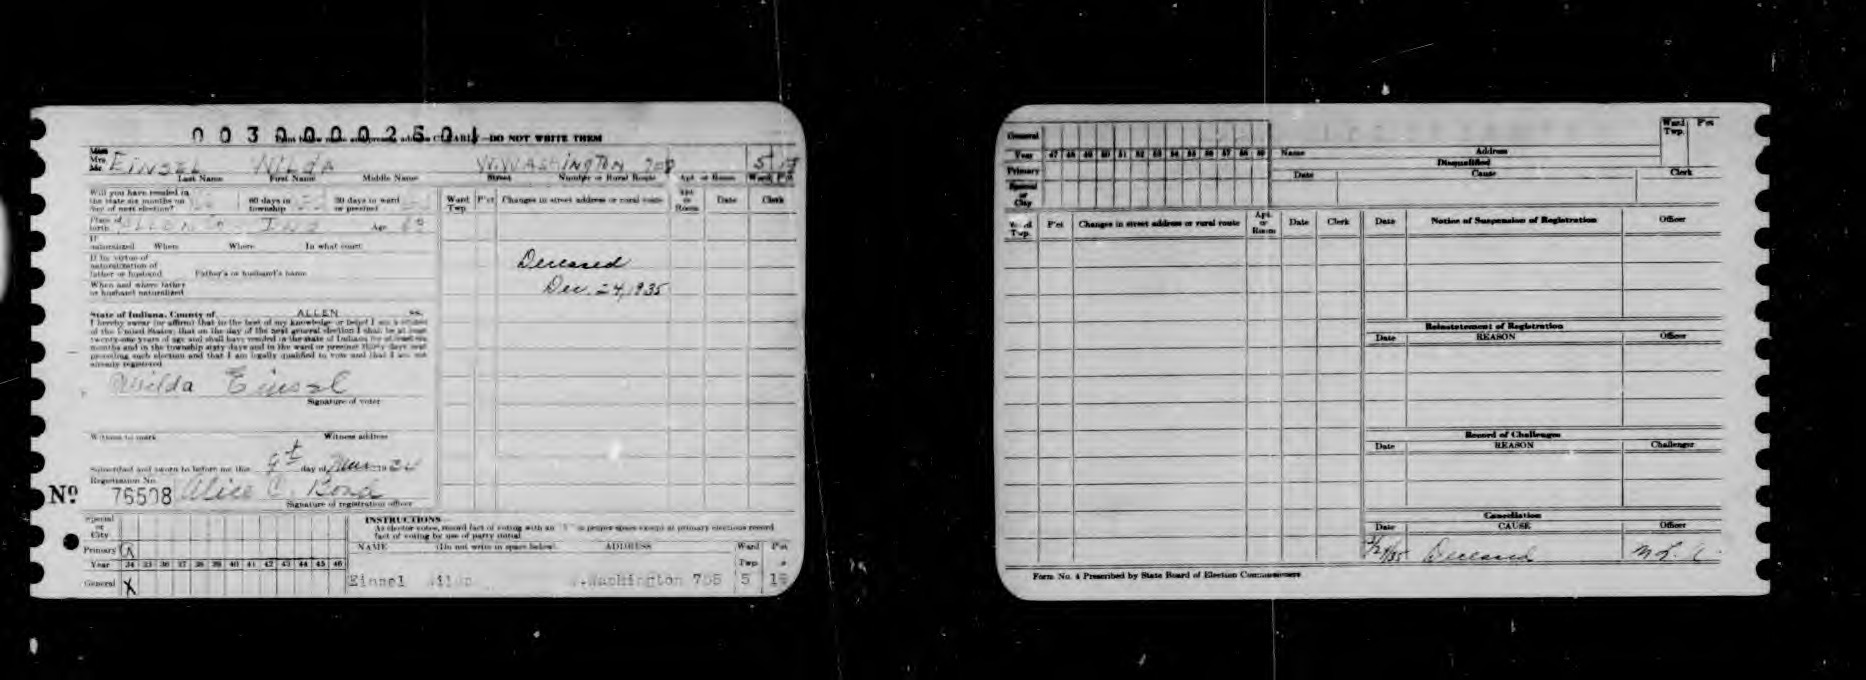 0030000250
DO NOT WRITE THEM
Miss
Mrs.
Mr.
EINSEL WILDA W. WASHINGTON 5
Last Name First Name Middle Name Street Number or Rural Route Apt. or Room Ward P'ct
Will you have resided in
the state six months on
day of next election?
60 days in
township
30 days in ward
or precinct
Place of
birth ALLEN Co. IND Age
If
naturalized When Where In what court
If by virtue of
naturalization of
father or husband Father's or husband's name
When and where father
or husband naturalized
State of Indiana, County of ALLEN ss.
I hereby swear (or affirm) that to the best of my knowledge or belief I am a citizen
of the United States; that on the day of the next general election I shall be at least
twenty-one years of age and shall have resided in the state of Indiana for at least six
months and in the township sixty days and in the ward or precinct thirty days next
preceding such election and that I am legally qualified to vote and that I am not
already registered
Wilda Einsel
Signature of voter
Witness to mark Witness address
Subscribed and sworn to before me this 9th day of Mar 1934
Registration No.
No. 76508 Alice C Bond
Signature of registration officer
Ward
Twp. P'ct Changes in street address or rural route Apt.
or
Room Date Clerk
Deceased
Dec. 24, 1935
Special
or
City
Primary X
Year 34 35 36 37 38 39 40 41 42 43 44 45 46
General X
INSTRUCTIONS
As elector votes, record fact of voting with an "X" in proper space except at primary elections record
fact of voting by use of party initial
NAME (Do not write in space below) ADDRESS Ward
Twp. P'ct
Einsel Wilda W.Washington 708 5 18
General
Year 47 48 49 50 51 52 53 54 55 56 57 58 59
Primary
Special
or
City
Name Address Ward
Twp. P'ct
Disqualified
Date Cause Clerk
Ward
Twp. P'ct Changes in street address or rural route Apt.
or
Room Date Clerk
Date Notice of Suspension of Registration Officer
Reinstatement of Registration
Date REASON Officer
Record of Challenges
Date REASON Challenger
Cancellation
Date CAUSE Officer
Deceased
Form No. 4 Prescribed by State Board of Election Commissioners